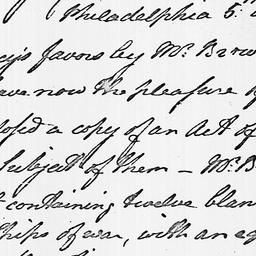 Philadelphia 5:
favors by Mr: Brow
have now the pleasure of
a copy of an Act of
Subject of them – Mr: B
containing twelve blan
Ships of war, with an eq